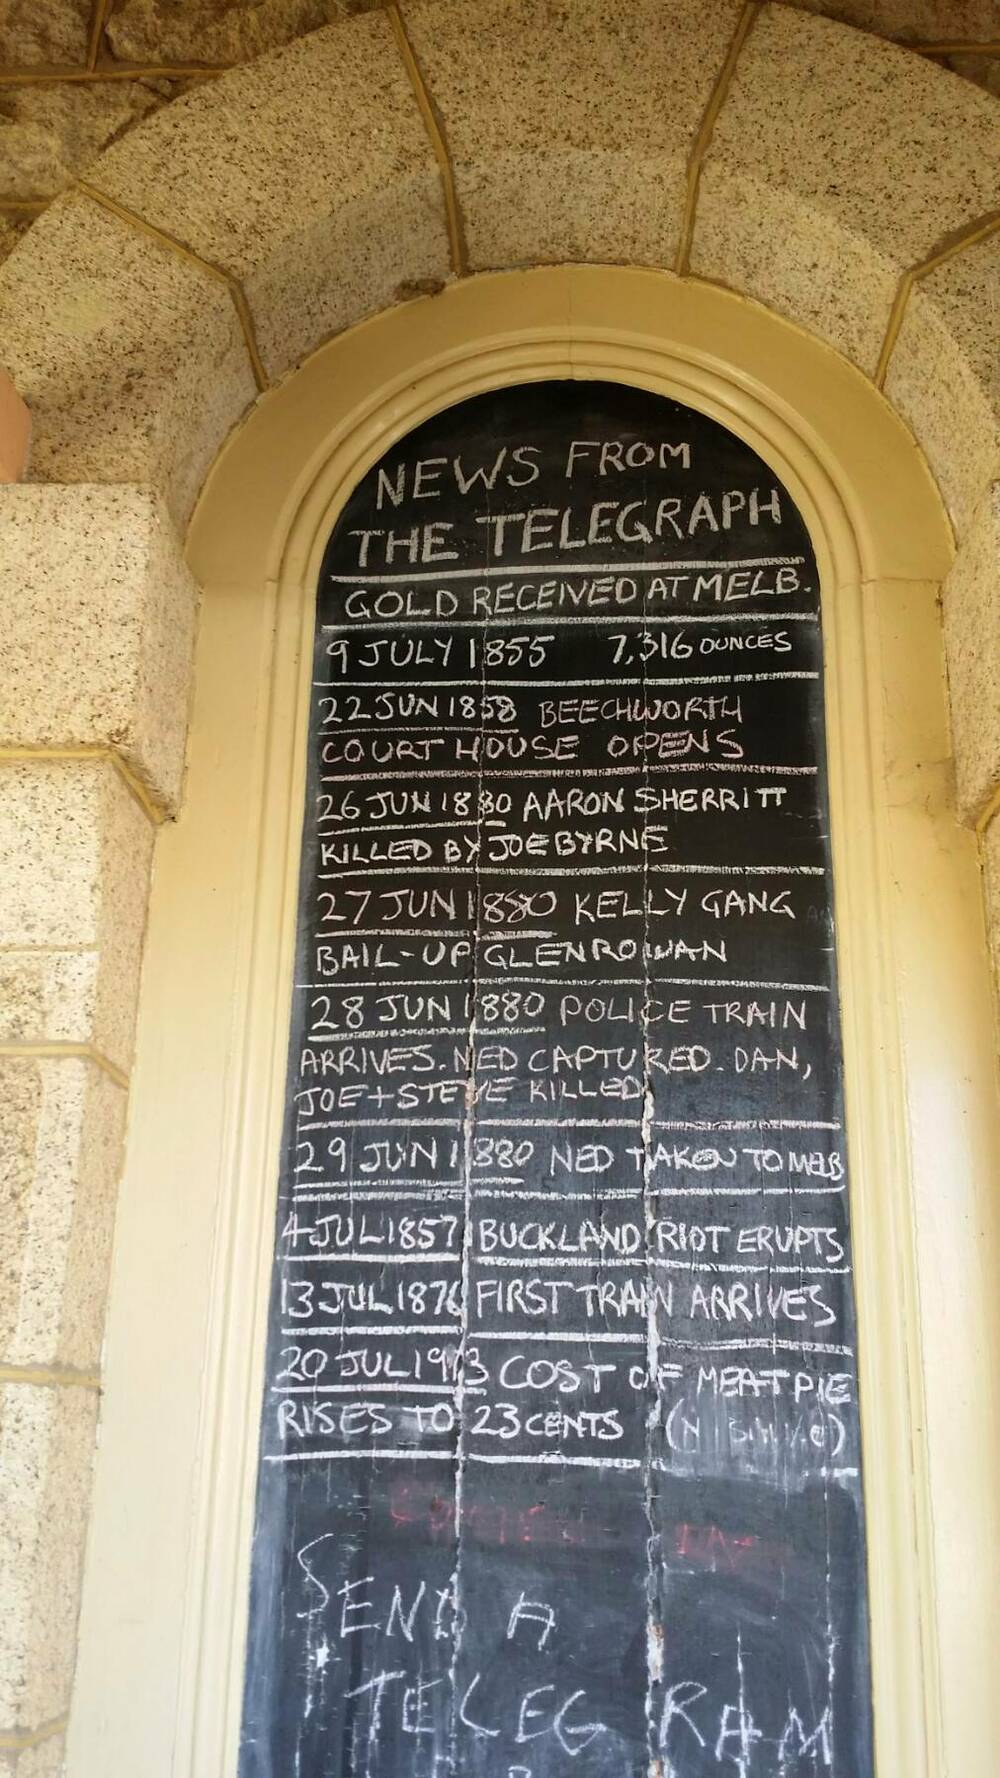 NEWS FROM
THE TELEGRAPH
GOLD RECEIVED AT MELB.
9 JULY 1855 7,316 OUNCES
22 JUN 1858 BEECHWORTH
COURT HOUSE OPENS
26 JUN 1880 AARON SHERRITT
KILLED BY JOE BYRNE
27 JUN 1880 KELLY GANG
BAIL-UP GLENROWAN
28 JUN 1880 POLICE TRAIN
ARRIVES. NED CAPTURED. DAN,
JOE + STEVE KILLED
29 JUN 1880 NED TAKEN TO MELB
4 JUL 1857 BUCKLAND RIOT ERUPTS
13 JUL 1876 FIRST TRAIN ARRIVES
20 JUL 1973 COST OF MEAT PIE
RISES TO 23 CENTS
SEND A
TELEGRAM